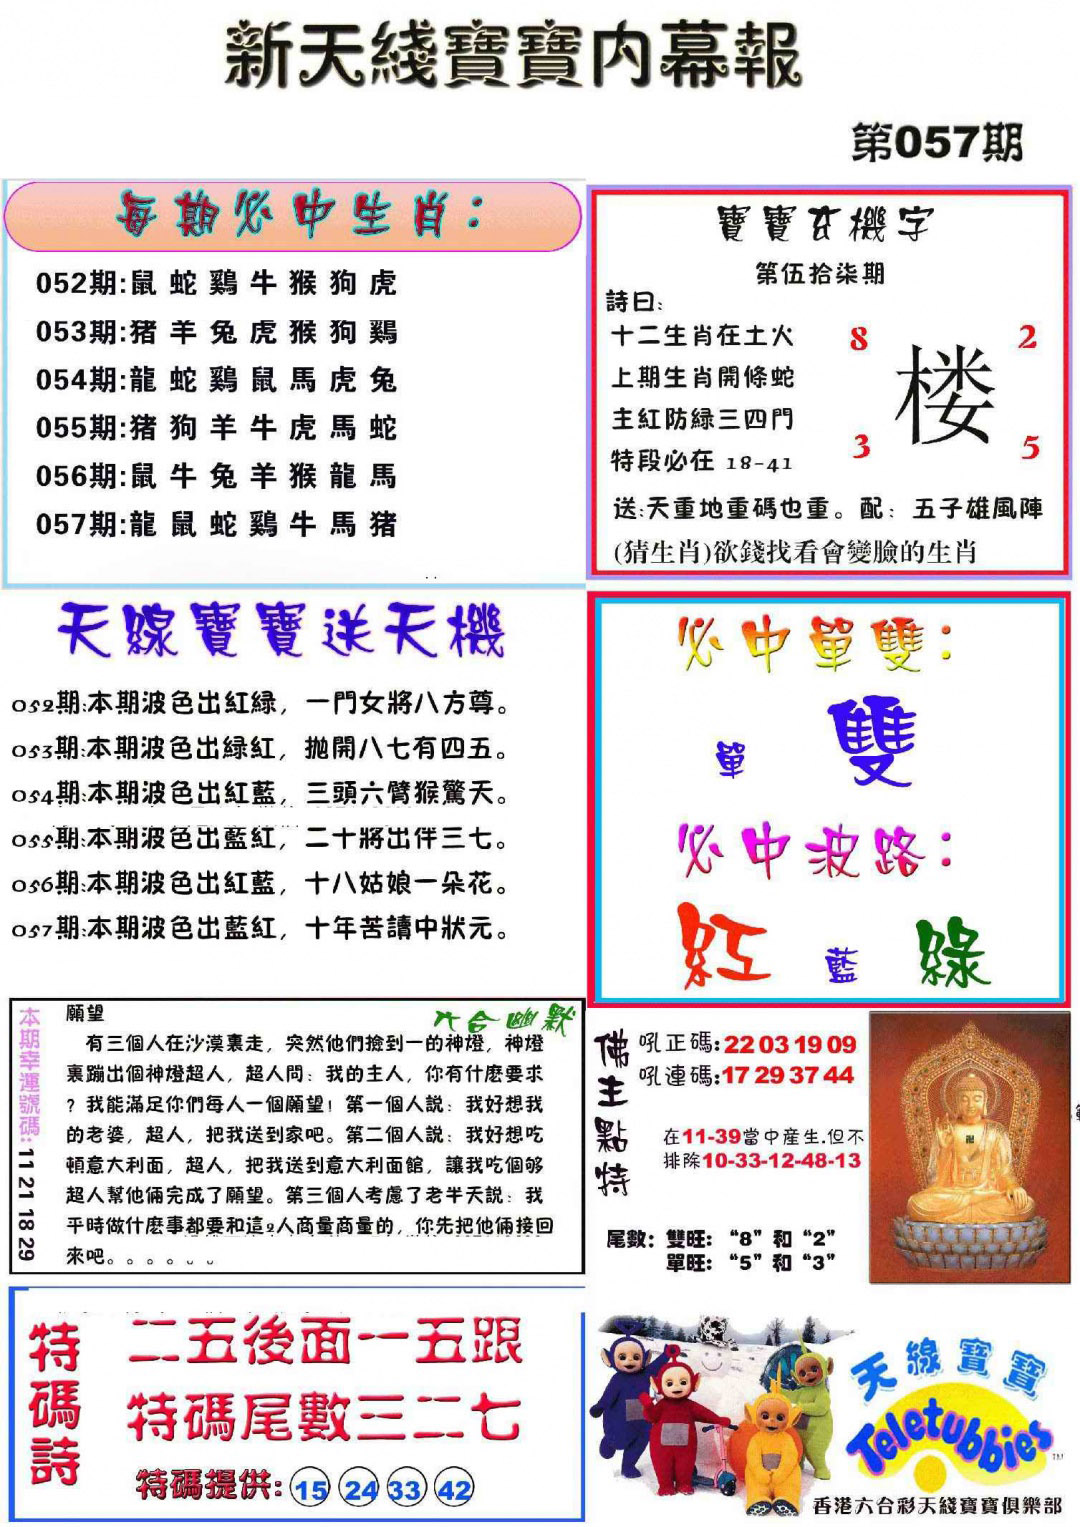 新天綫寶寶内幕報
第057期
每期必中生肖：
052期:鼠 蛇 鷄 牛 猴 狗 虎
053期:猪 羊 兔 虎 猴 狗 鷄
054期:龍 蛇 鷄 鼠 馬 虎 兔
055期:猪 狗 羊 牛 虎 馬 蛇
056期:鼠 牛 兔 羊 猴 龍 馬
057期:龍 鼠 蛇 鷄 牛 馬 猪
寶寶玄機字
第伍拾柒期
詩曰:
十二生肖在土火
上期生肖開條蛇
主紅防緑三四門
特段必在 18-41
8 2
楼
3 5
送:天重地重碼也重。配：五子雄風陣
(猜生肖)欲錢找看會變臉的生肖
天線寶寶送天機
052期:本期波色出紅緑，一門女將八方尊。
053期:本期波色出緑紅，抛開八七有四五。
054期:本期波色出紅藍，三頭六臂猴驚天。
055期:本期波色出藍紅，二十將出伴三七。
056期:本期波色出紅藍，十八姑娘一朵花。
057期:本期波色出藍紅，十年苦讀中狀元。
必中單雙：
單 雙
必中波路：
紅 藍 綠
本期幸運號碼: 11 21 18 29
願望
六合幽默
有三個人在沙漠裏走，突然他們撿到一的神燈，神燈
裏蹦出個神燈超人，超人問：我的主人，你有什麽要求
？我能滿足你們每人一個願望！第一個人説：我好想我
的老婆，超人，把我送到家吧。第二個人説：我好想吃
頓意大利面，超人，把我送到意大利面館，讓我吃個够
超人幫他倆完成了願望。第三個人考慮了老半天説：我
平時做什麽事都要和這2人商量商量的，你先把他倆接回
來吧。。。。。。
佛主點特
吼正碼:22 03 19 09
吼連碼:17 29 37 44
在11-39當中産生.但不
排除10-33-12-48-13
尾數：雙旺：“8”和“2”
單旺：“5”和“3”
特碼詩
二五後面一五跟
特碼尾數三二七
特碼提供: 15 24 33 42
天線寶寶
Teletubbies
TM
香港六合彩天綫寶寶俱樂部